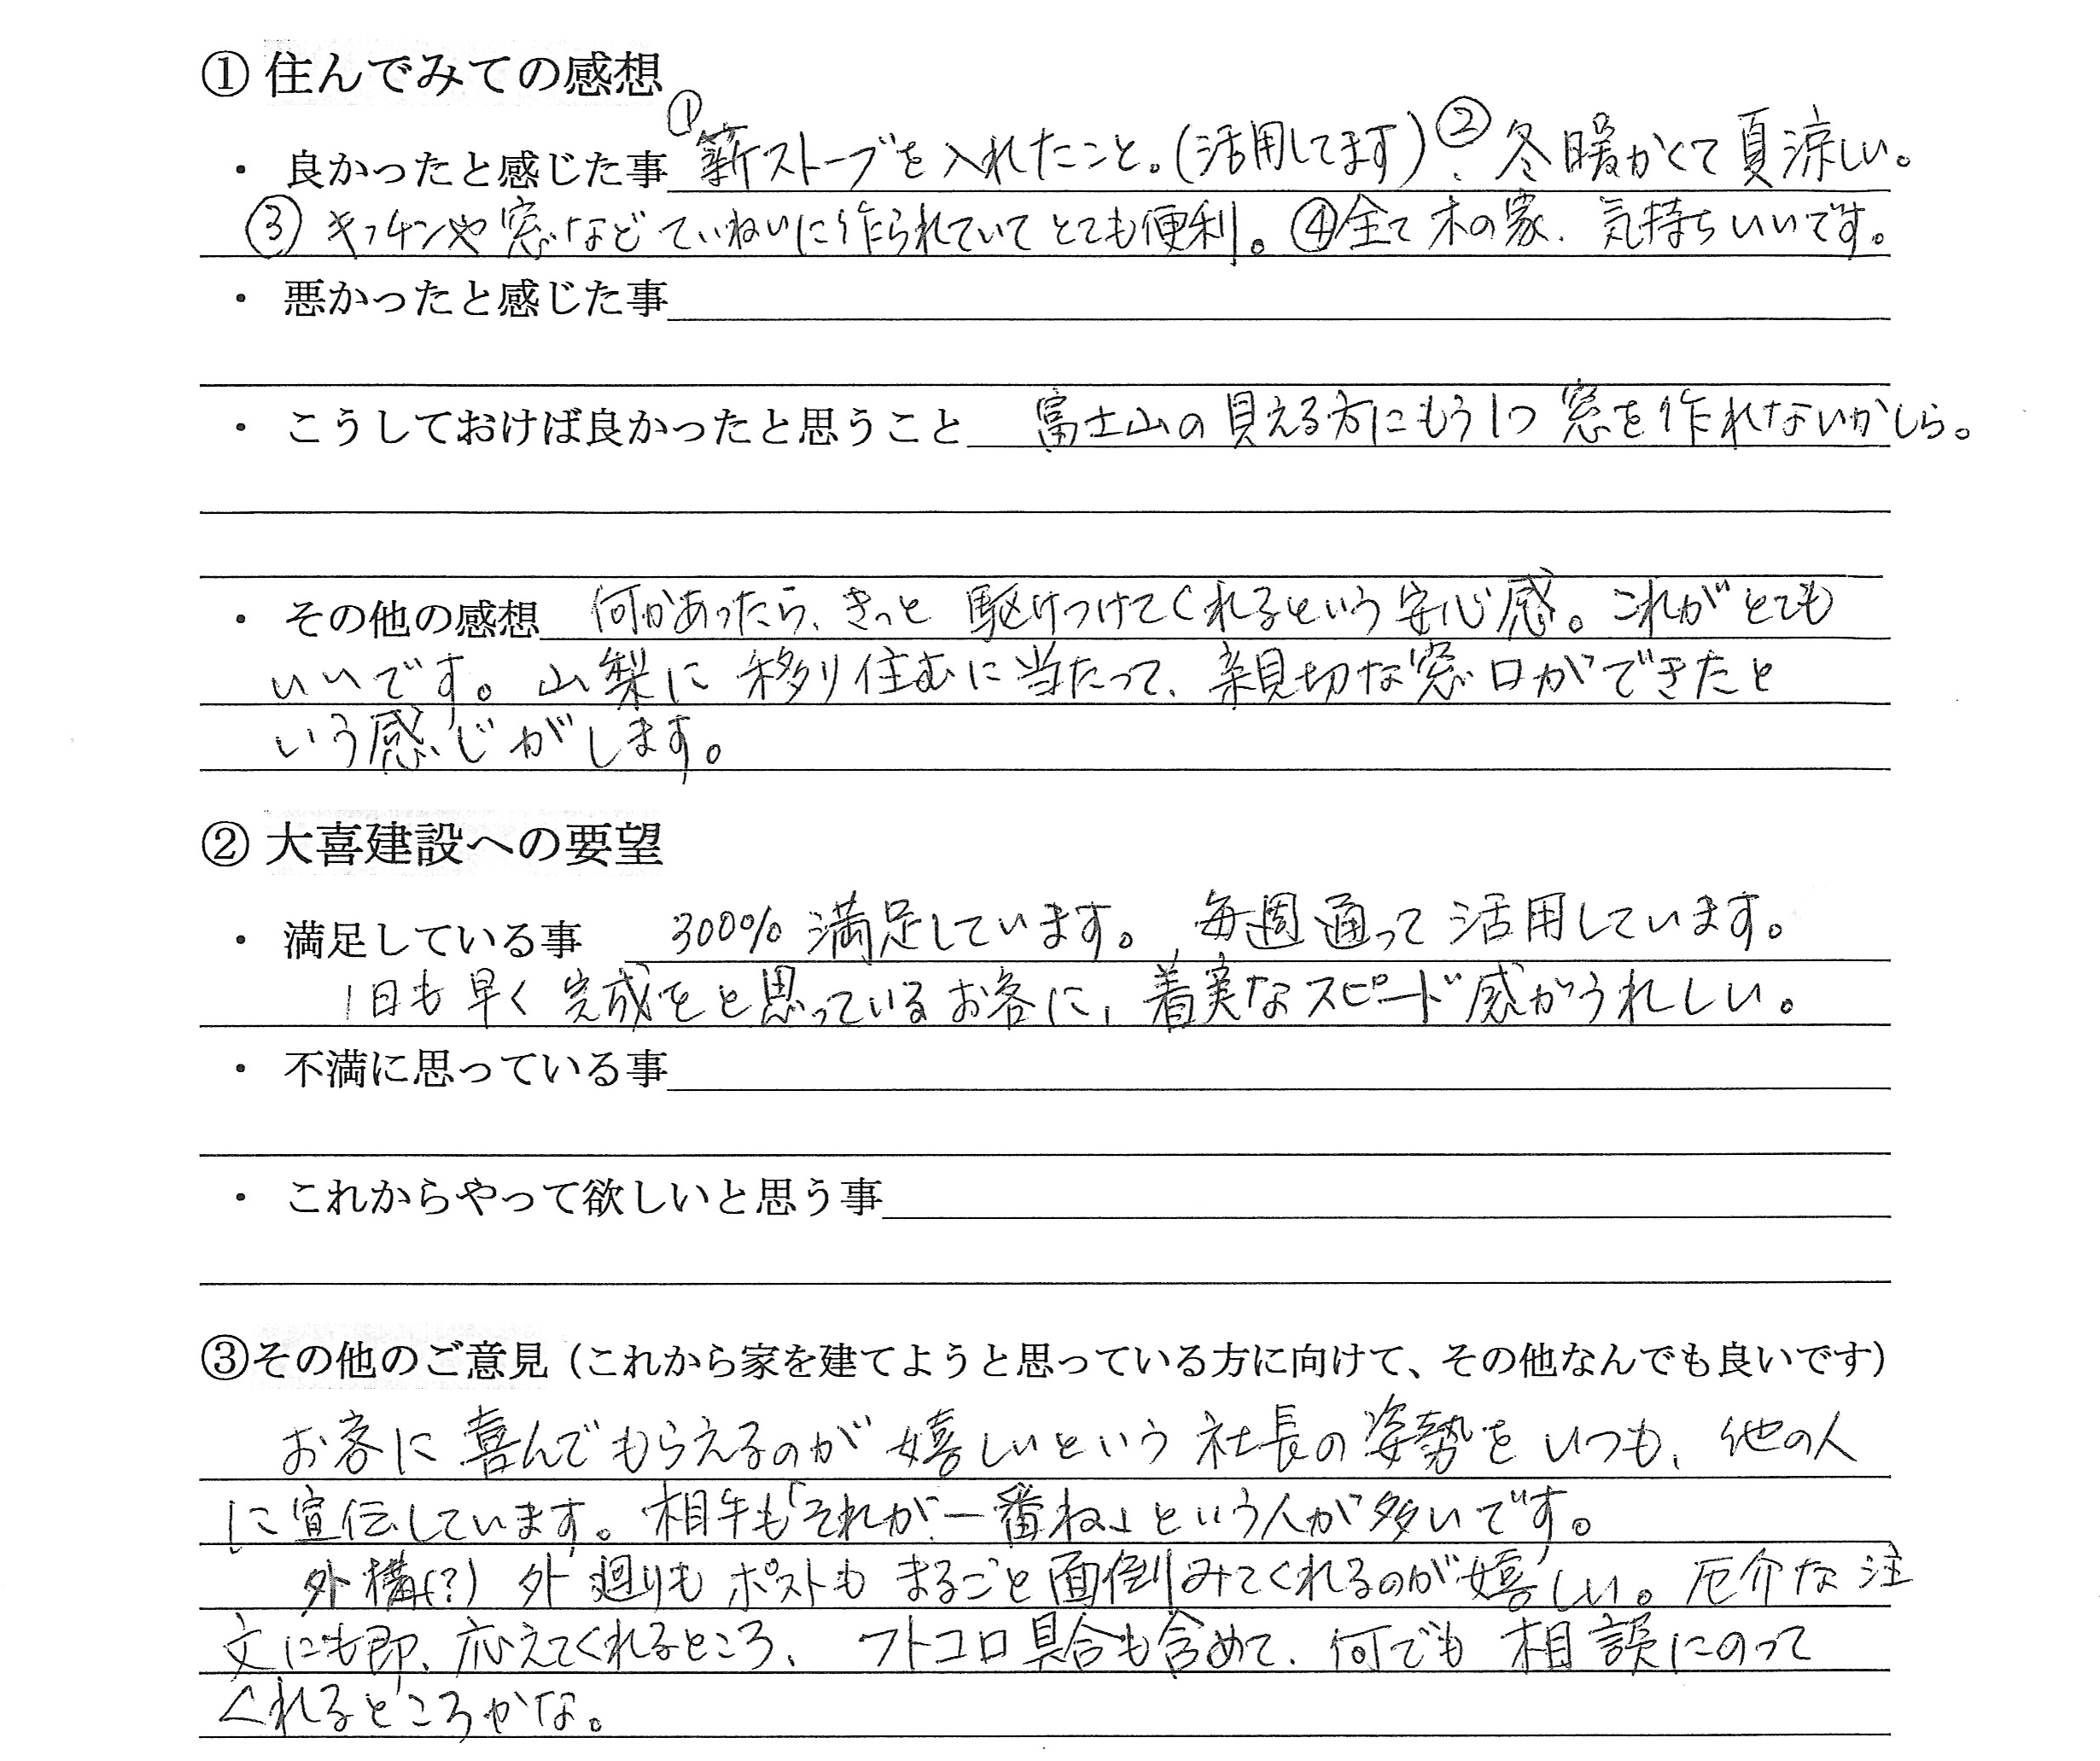 ① 住んでみての感想
・ 良かったと感じた事 ①薪ストーブを入れたこと。(活用してます)、②冬暖かくて夏涼しい。
③ キッチンや窓などていねいに作られていてとても便利。④全て木の家、気持ちいいです。
・ 悪かったと感じた事
・ こうしておけば良かったと思うこと 富士山の見える方にもう1つ窓を作れないかしら。
・ その他の感想 何かあったら、きっと駆けつけてくれるという安心感。これがとても
いいです。山梨に移り住むに当たって、親切な窓口ができたと
いう感じがします。
② 大喜建設への要望
・ 満足している事 300%満足しています。毎週通って活用しています。
1日も早く完成をと思っているお客に、着実なスピード感がうれしい。
・ 不満に思っている事
・ これからやって欲しいと思う事
③その他のご意見（これから家を建てようと思っている方に向けて、その他なんでも良いです）
お客に喜んでもらえるのが嬉しいという社長の姿勢をいつも、他の人
に宣伝しています。相手も「それが一番ね」という人が多いです。
外構(?)外廻りもポストもまるごと面倒みてくれるのが嬉しい。厄介な注
文にも即、応えてくれるところ、フトコロ具合も含めて、何でも相談にのって
くれるところかな。